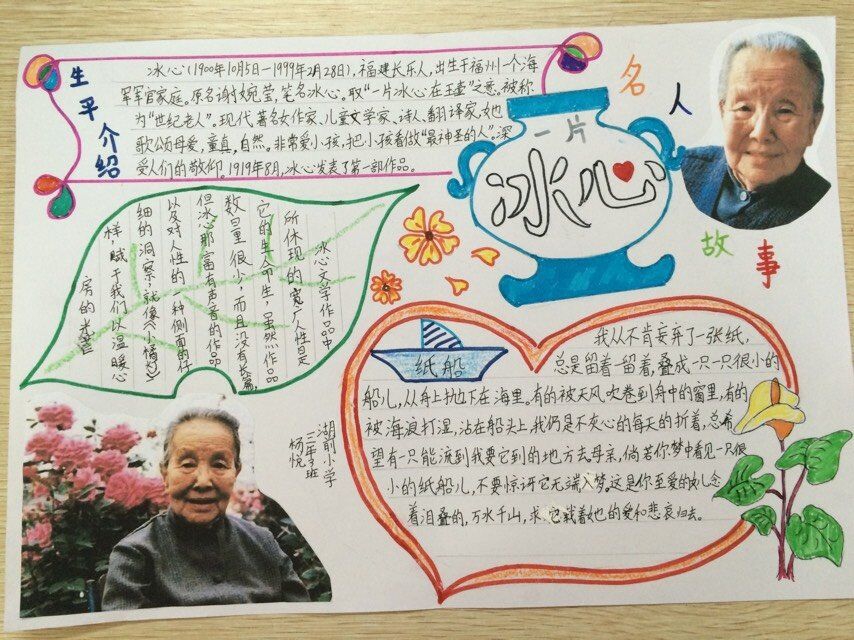 生平介绍
冰心(1900年10月5日—1999年2月28日),福建长乐人,出生于福州一个海
军军官家庭。原名谢婉莹,笔名冰心。取“一片冰心在玉壶”之意。被称
为“世纪老人”。现代著名女作家、儿童文学家、诗人、翻译家,她
歌颂母爱,童真,自然。非常爱小孩,把小孩看做“最神圣的人”。深
受人们的敬仰。1919年8月,冰心发表了第一部作品。
名人
故事
一片
冰心
冰心文学作品中
所体现的宽广人性是
它的生命
虽然作品
数量很少,而且没有长篇,
但冰心那富有声音的作品
以及对人性的一种侧面的仔
细的洞察,就像《小橘灯》
样,赋于我们以温暖心
房的光
纸船
我从不肯妄弃了一张纸,
总是留着—留着,叠成一只一只很小的
船儿,从舟上抛下在海里。有的被天风吹卷到舟中的窗里,有的
被海浪打湿,沾在船头上,我仍是不灰心的每天的折着,总希
望有一只能流到我要它到的地方去母亲,倘若你梦中看见一只很
小的纸船儿,不要惊讶它无端入梦。这是你至爱的女儿念
着泪叠的,万水千山,求它载着她的爱和悲哀归去。
湖前小学
三年3班
杨悦